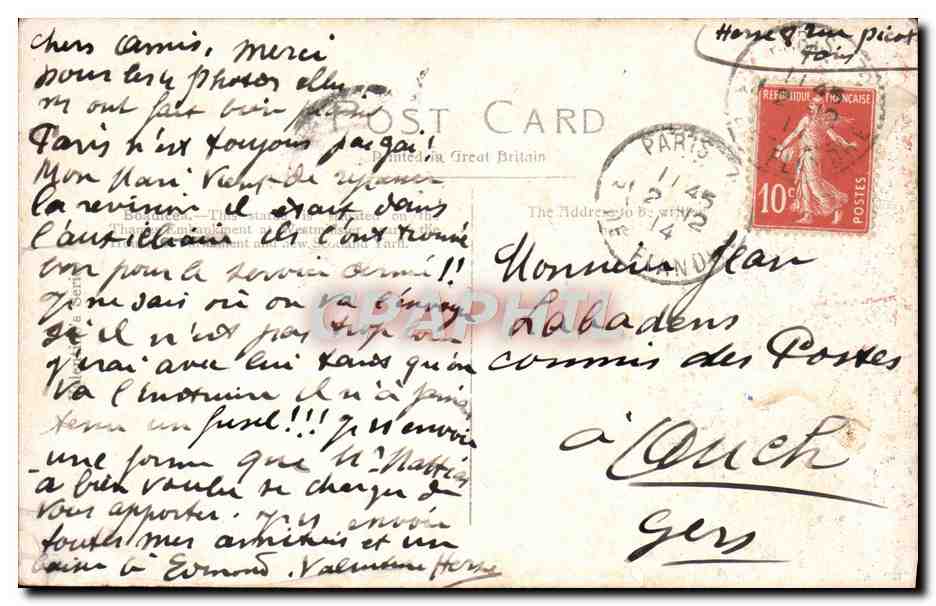 Herse 8 rue Picot
Paris
chers amis, merci
pour les photos elles
m'ont fait bien plaisir
Paris n'est toujours pas gai!
Mon Mari vient de repasser
la revision il était dans
l'auxiliaire ils l'ont trouvé
bon pour le service armé!!
je ne sais où on va l'envoyer
si il n'est pas trop loin
j'irai avec lui tandis qu'on
va l'instruire il n'a jamais
tenu un fusil!!! je vs envoie
une forme que Mr
a bien voulu se charger de
vous apporter. je vs envoie
toutes mes amitiés et un
baiser à Edmond. Valentine Herse
POST CARD
Printed in Great Britain
Boadicea.—This statue is situated on the
Thames Embankment at Westminster, near the
and new Scotland Yard.
The Address to be written
REPUBLIQUE FRANÇAISE
10c
POSTES
PARIS
11 45
2 12
14
CPAPHIL
Monsieur Jean
Labadens
commis des Postes
à Auch
Gers